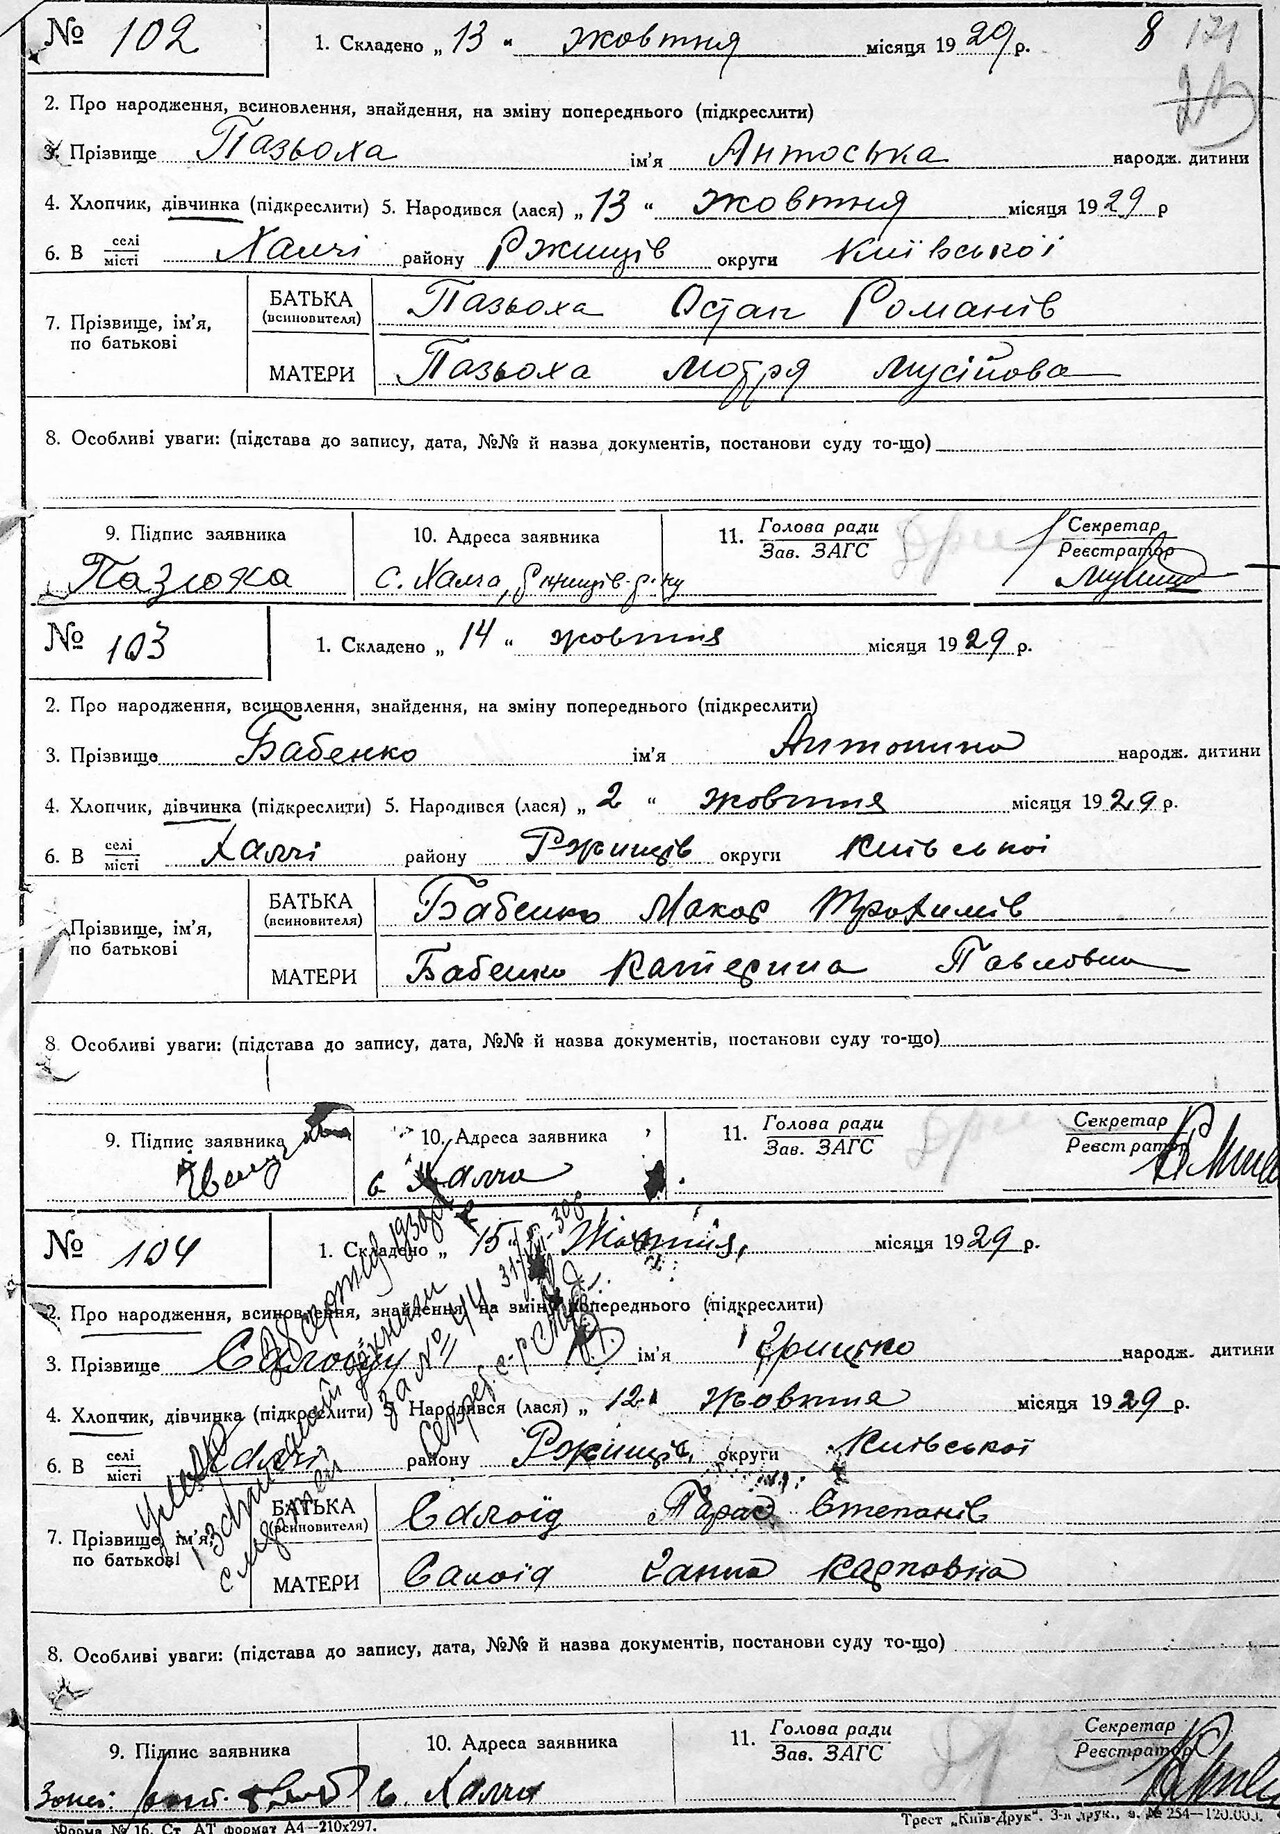 № 102
1. Складено „13" жовтня місяця 1929 р. 8 171
2. Про народження, всиновлення, знайдення, на зміну попереднього (підкреслити)
3. Прізвище Пазьоха ім'я Антоська народж. дитини
4. Хлопчик, дівчинка (підкреслити) 5. Народився (лася) „13" жовтня місяця 1929 р
6. В селі місті Халчі району Ржищів округи Київської
7. Прізвище, ім'я, по батькові
БАТЬКА (всиновителя) Пазьоха Остап Романів
МАТЕРИ Пазьоха Мотря Мусійова
8. Особливі уваги: (підстава до запису, дата, №№ й назва документів, постанови суду то-що)
9. Підпис заявника 10. Адреса заявника 11. Голова ради Зав. ЗАГС Секретар Реєстратор
Пазюха с. Халча, Ржищів р-ну
№ 103
1. Складено „14" жовтня місяця 1929 р.
2. Про народження, всиновлення, знайдення, на зміну попереднього (підкреслити)
3. Прізвище Бабенко ім'я Антонина народж. дитини
4. Хлопчик, дівчинка (підкреслити) 5. Народився (лася) „2" жовтня місяця 1929 р.
6. В селі місті Халчі району Ржищів округи Київської
Прізвище, ім'я, по батькові
БАТЬКА (всиновителя) Бабенко Макар Трохимів
МАТЕРИ Бабенко Катерина Павловна
8. Особливі уваги: (підстава до запису, дата, №№ й назва документів, постанови суду то-що)
9. Підпис заявника 10. Адреса заявника 11. Голова ради Зав. ЗАГС Секретар Реєстратор
с. Халча
№ 104
1. Складено „15" Жовтня, місяця 1929 р.
2. Про народження, всиновлення, знайдення, на зміну попереднього (підкреслити)
3. Прізвище Салоїд ім'я Грицько народж. дитини
4. Хлопчик, дівчинка (підкреслити) 5. Народився (лася) „12" жовтня місяця 1929 р.
6. В селі місті Халчі району Ржищів, округи Київської
7. Прізвище, ім'я, по батькові
БАТЬКА (всиновителя) Салоїд Тарас Степанів
МАТЕРИ Салоїд Ганна Карповна
за № 44
8. Особливі уваги: (підстава до запису, дата, №№ й назва документів, постанови суду то-що)
9. Підпис заявника 10. Адреса заявника 11. Голова ради Зав. ЗАГС Секретар Реєстратор
с. Халча
Форма № 16. Ст. АТ формат А4—210x297.
Трест „Київ-Друк". 3-я друк., з. № 254—120.000.